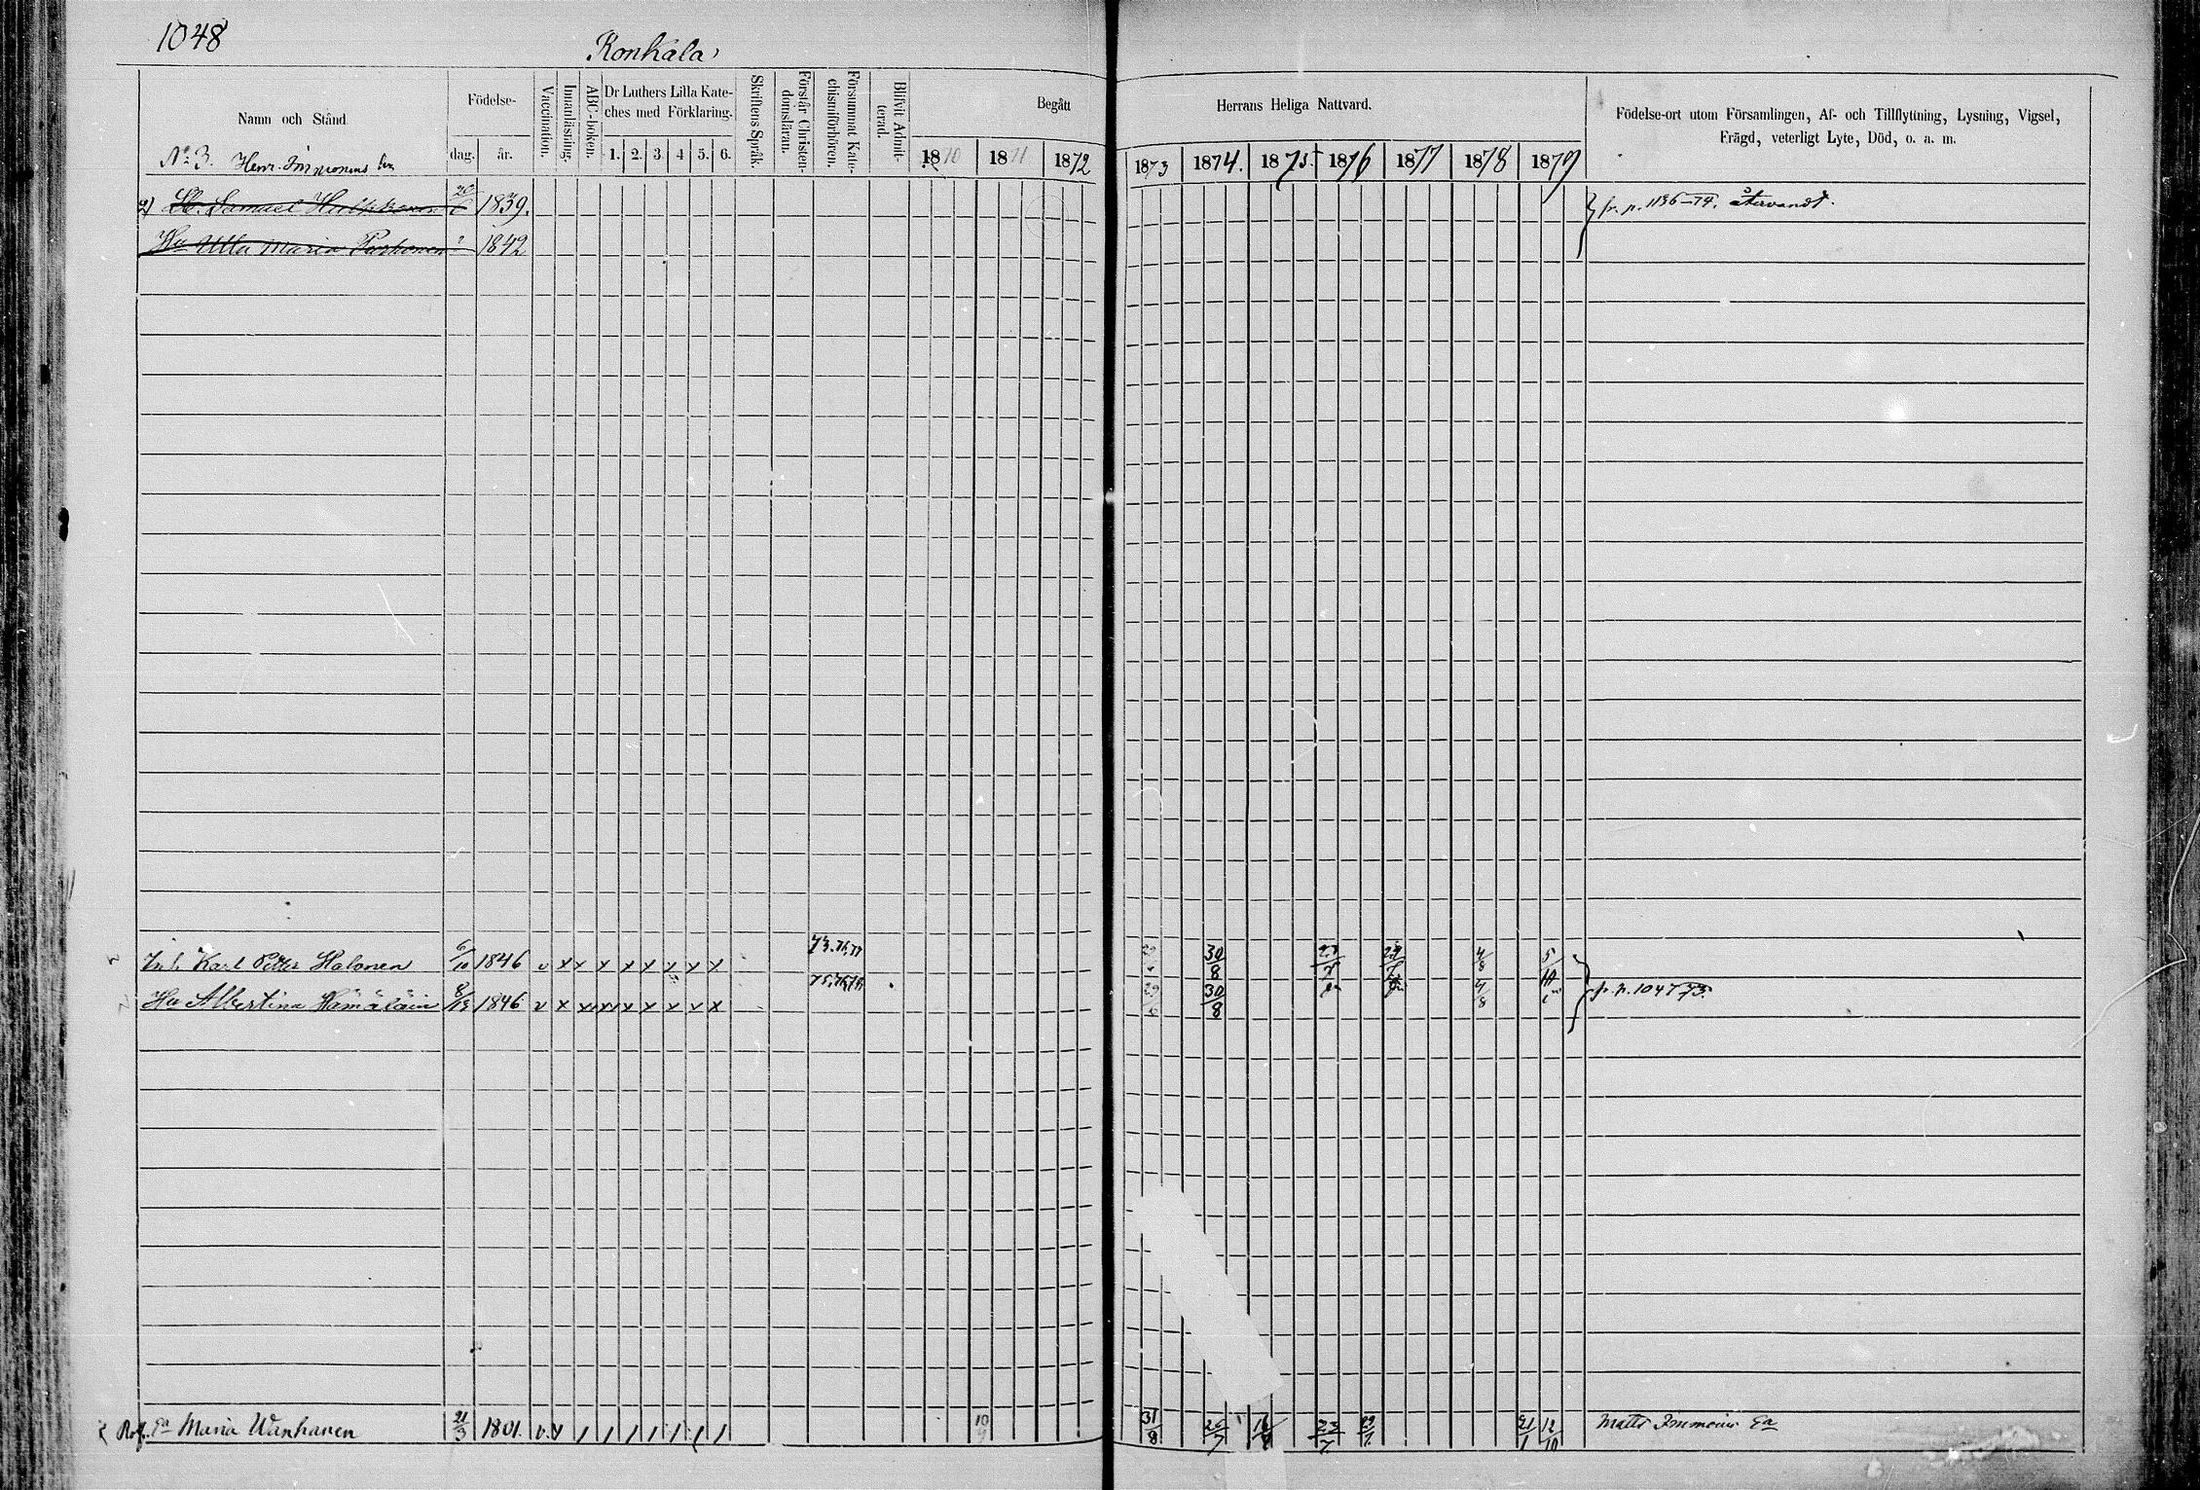 1048
Ronkala
Namn och Stånd.
Födelse-
dag. år.
Vaccination.
Innanläsning.
ABC-boken.
Dr Luthers Lilla Kate-
ches med Förklaring.
1. 2. 3. 4. 5. 6.
Skriftens Språk.
Förstår Christen-
domsläran.
Försummat Kate-
chismiförhören.
Blifvit Admit-
terad.
Begått
1870 1871 1872
Herrans Heliga Nattvard.
1873 1874. 1875. 1876 1877 1878 1879
Födelse-ort utom Församlingen, Af- och Tillflyttning, Lysning, Vigsel,
Frägd, veterligt Lyte, Död, o. a. m.
No 3. Henr. Immonens
2) Lb. Samuel Hulkkonen 1839. fr. p. 1136-74. återvandt.
Hu Ulla Maria 1842
Karl Petter Halonen 6/10 1846 v x x x x x x x x 73. 30/8 4/8
Hu Albertina Hämäläin 8/13 1846 v x x x x x x 30/8 4/8 fr. p. 1047-73.
Rof. Ea Maria Wanhanen 21/3 1801. v. 10/9 31/8 21/1 12/10 Matts Immoin. Ea